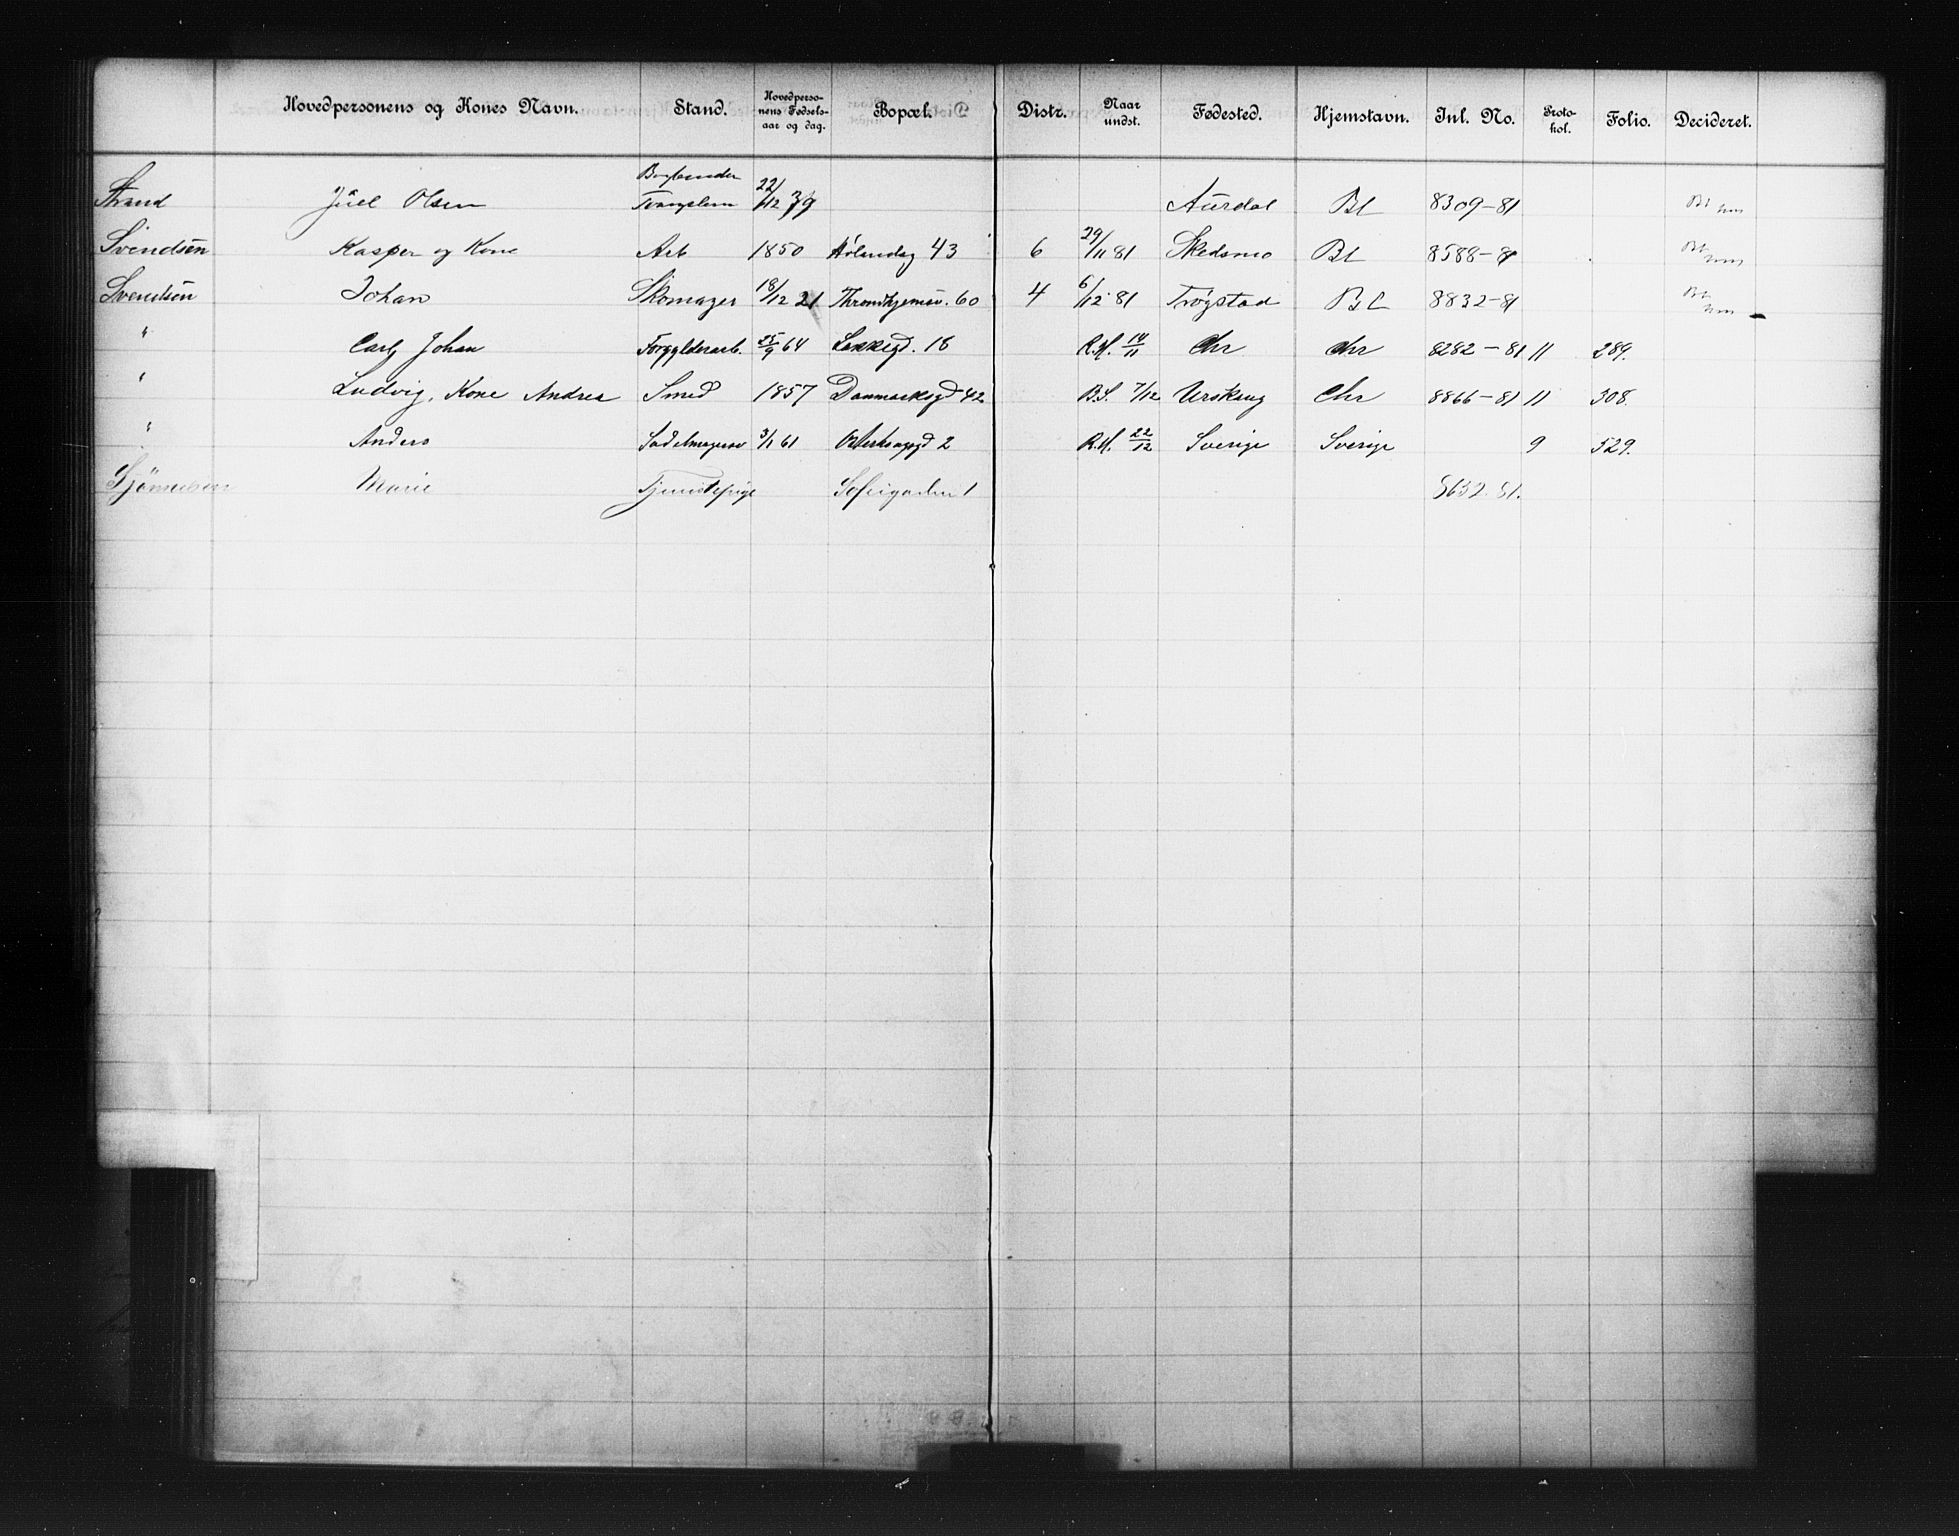 Hovedpersonens og Kones Navn. Stand. Hovedpersonens Fødselsaar og dag. Bopæl. Distr. Naar undst. Fødested. Hjemstavn. Inl. No. Protokol. Folio. Decideret.
Strand Juel Olsen Bogbinder Tvangslem 22/12 39 Aurdal Bl 8309-81
Svendsen Kasper og Kone Arb 1850 Hølandsg 43 6 29/11 81 Skedsmo Bl 8588-8
Svendsen Johan Skomager 18/12 21 Throndhjemsv. 60 4 6/12 81 Trøgstad Bl 8832-81
" Carl Johan Forgylderarb. 25/9 64 Lakkegd. 18 R.M. 14/11 Chr Chr 8282-81 11 289.
" Ludvig, Kone Andrea Smed 1857 Danmarksgd 42 B.S. 7/12 Urskoug Chr 8866-81 11 308.
" Anders Sadelmagersv 3/1 61 2 R.M. 22/12 Sverige Sverige 9 529.
Marie Tjenestepige Sofiegaden 1 8652.81.